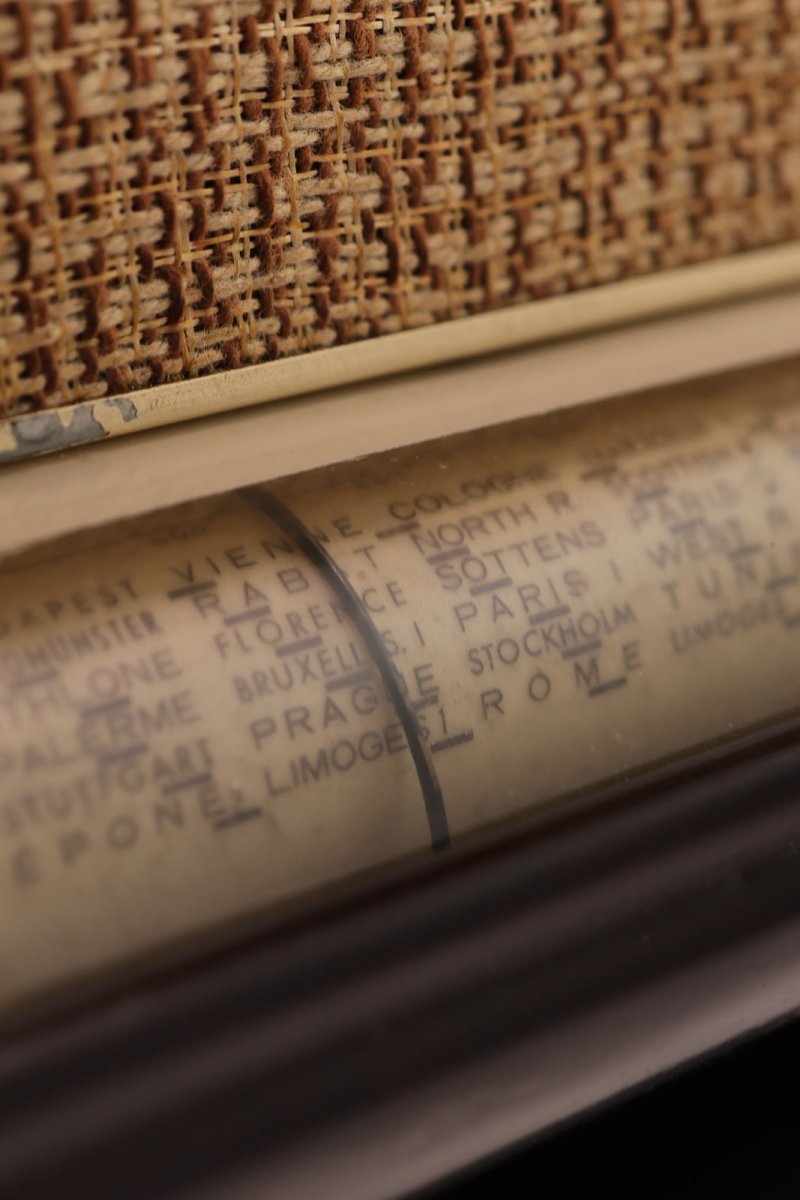 DAPEST VIENNE COLOGNE
OMUNSTER RABAT NORTH R
THLONE FLORENCE SOTTENS PARIS
PALERME BRUXELLES. I PARIS I WEST R
STUTTGART PRAGUE STOCKHOLM TUNIS
EPONE LIMOGES I ROME LIMOGES